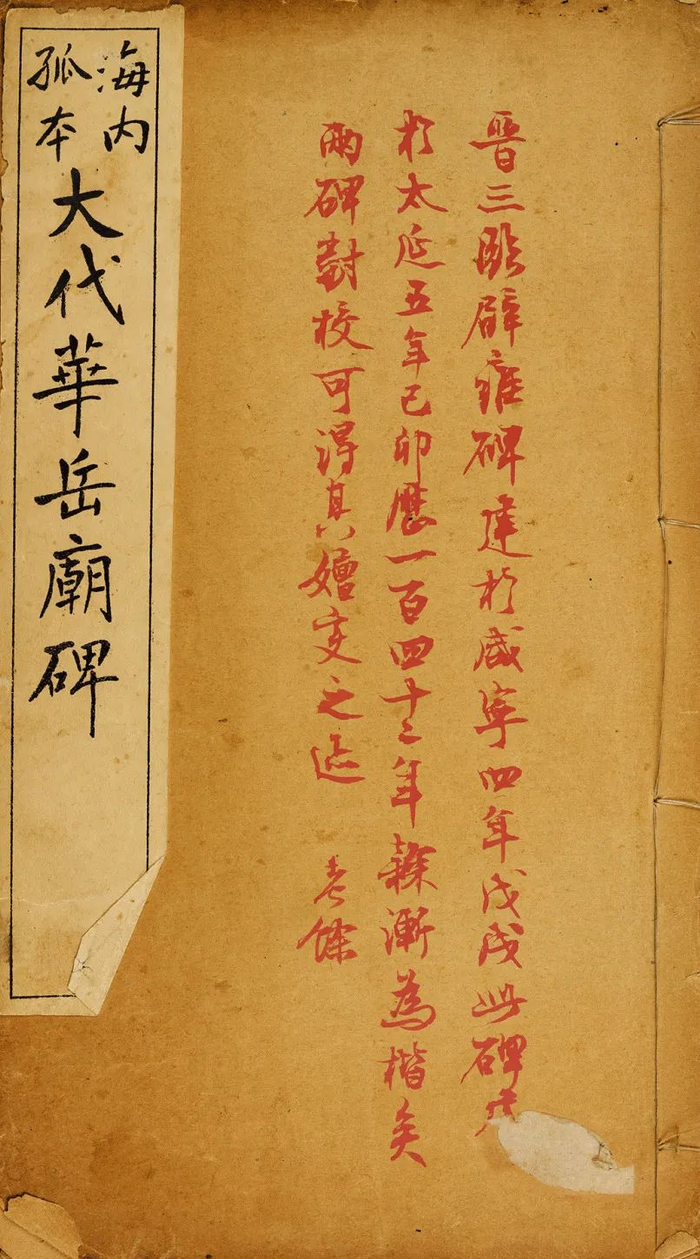 晉三臨辟雍碑建於咸寧四年戊戌此碑
於太延五年己卯歷一百四十二年隸漸為楷矣
兩碑對校可得其嬗变之迹
餘
海内
孤本
大代華岳廟碑